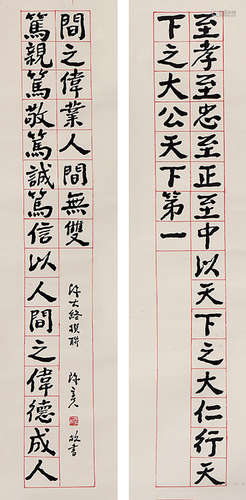 至孝至忠至正至中以天下之大仁行天
下之大公天下第一
篤親篤敬篤誠篤信以人間之偉德成人
間之偉業人間無雙
陳大絡撰聯
陳立夫
敬書